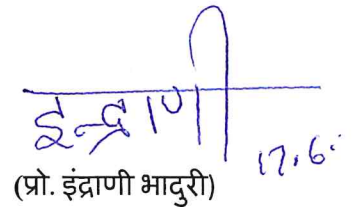 इन्द्राणी
17.6.
(प्रो. इंद्राणी भादुरी)